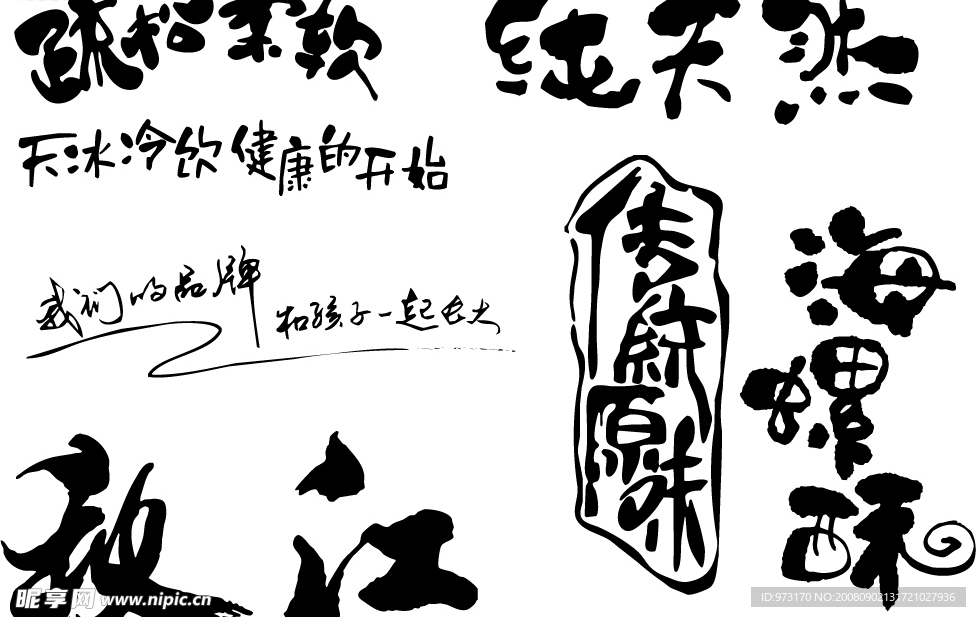 疏松柔软
纯天然
天冰冷饮健康的开始
我们的品牌
和孩子一起长大
传统原味
海螺酥
江
昵享网 www.nipic.cn
ID:973170 NO:20080902131721027936